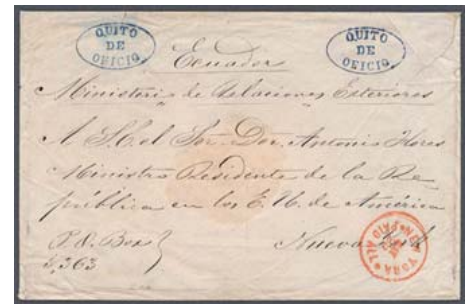 QUITO
DE
OFICIO
QUITO
DE
OFICIO
Ecuador
Ministerio de Relaciones Exteriores
A S. E. el Sor. Dor. Antonio Flores
Ministro Residente de la Re-
pública en los E. U. de América
P. O. Box
5,363
Nueva York
NEW YORK
PAID ALL